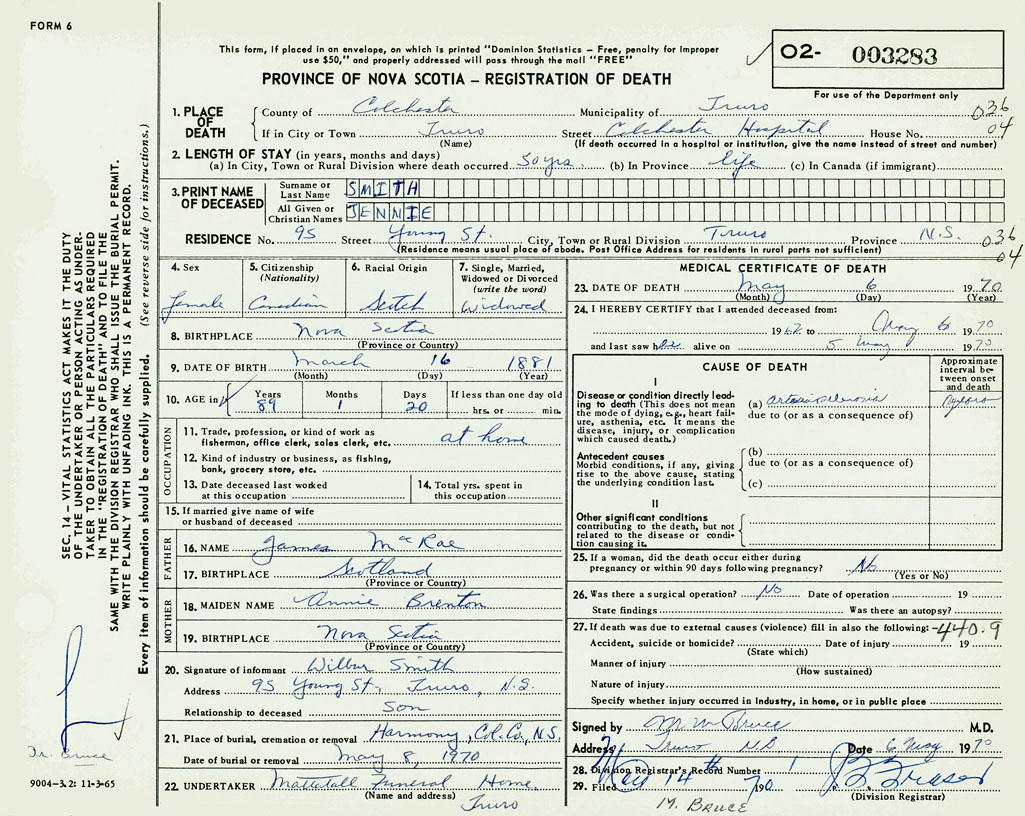 FORM 6
This form, if placed in an envelope, on which is printed "Dominion Statistics – Free, penalty for improper
use $50," and properly addressed will pass through the mail "FREE"
PROVINCE OF NOVA SCOTIA – REGISTRATION OF DEATH
02- 003283
For use of the Department only
1. PLACE OF DEATH
County of Colchester Municipality of Truro 036
If in City or Town Truro Street Colchester Hospital House No. 04
(Name) (If death occurred in a hospital or institution, give the name instead of street and number)
2. LENGTH OF STAY (in years, months and days)
(a) In City, Town or Rural Division where death occurred 50 yrs. (b) In Province life (c) In Canada (if immigrant)
3. PRINT NAME OF DECEASED
Surname or Last Name SMITH
All Given or Christian Names JENNIE
RESIDENCE No. 95 Street Young St. City, Town or Rural Division Truro Province N.S. 036
(Residence means usual place of abode. Post Office Address for residents in rural parts not sufficient) 04
4. Sex
female
5. Citizenship
(Nationality)
Canadian
6. Racial Origin
Scotch
7. Single, Married, Widowed or Divorced
(write the word)
Widowed
8. BIRTHPLACE Nova Scotia
(Province or Country)
9. DATE OF BIRTH March 16 1881
(Month) (Day) (Year)
10. AGE in
Years Months Days If less than one day old
89 1 20 hrs. or min.
OCCUPATION
11. Trade, profession, or kind of work as
fisherman, office clerk, sales clerk, etc. at home
12. Kind of industry or business, as fishing,
bank, grocery store, etc.
13. Date deceased last worked
at this occupation
14. Total yrs. spent in
this occupation
15. If married give name of wife
or husband of deceased
FATHER
16. NAME James MacRae
17. BIRTHPLACE Scotland
(Province or Country)
MOTHER
18. MAIDEN NAME Annie Brenton
19. BIRTHPLACE Nova Scotia
(Province or Country)
20. Signature of informant Wilbur Smith
Address 95 Young St., Truro, N.S.
Relationship to deceased Son
21. Place of burial, cremation or removal Harmony, Col. Co., N.S.
Date of burial or removal May 8, 1970
22. UNDERTAKER Mattatall Funeral Home,
(Name and address) Truro
MEDICAL CERTIFICATE OF DEATH
23. DATE OF DEATH May 6 1970
(Month) (Day) (Year)
24. I HEREBY CERTIFY that I attended deceased from:
1962 to May 6 1970
and last saw her alive on 5 May 1970
CAUSE OF DEATH
Approximate interval between onset and death
I
Disease or condition directly leading to death (This does not mean
the mode of dying, e.g., heart failure, asthenia, etc. It means the
disease, injury, or complication
which caused death.)
(a) arteriosclerosis
due to (or as a consequence of)
Antecedent causes
Morbid conditions, if any, giving
rise to the above cause, stating
the underlying condition last.
(b)
due to (or as a consequence of)
(c)
II
Other significant conditions
contributing to the death, but not
related to the disease or condition causing it.
25. If a woman, did the death occur either during
pregnancy or within 90 days following pregnancy? No
(Yes or No)
26. Was there a surgical operation? No Date of operation 19
State findings Was there an autopsy?
27. If death was due to external causes (violence) fill in also the following: -440.9
Accident, suicide or homicide? Date of injury 19
(State which)
Manner of injury
(How sustained)
Nature of injury
Specify whether injury occurred in Industry, in home, or in public place
Signed by M. M. Bruce M.D.
Address Truro NS Date 6 May 1970
28. Division Registrar's Record Number 1
29. Filed May 14th 1970
(Division Registrar)
M. BRUCE
SEC. 14 – VITAL STATISTICS ACT MAKES IT THE DUTY
OF THE UNDERTAKER OR PERSON ACTING AS UNDER-
TAKER TO OBTAIN ALL THE PARTICULARS REQUIRED
IN THE "REGISTRATION OF DEATH" AND TO FILE THE
SAME WITH THE DIVISION REGISTRAR WHO SHALL ISSUE THE BURIAL PERMIT.
WRITE PLAINLY WITH UNFADING INK. THIS IS A PERMANENT RECORD.
Every item of information should be carefully supplied. (See reverse side for instructions.)
Dr. Bruce
9004–3.2: 11-3-65